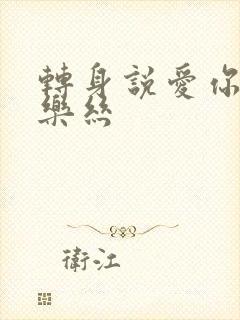 轉身說愛你
樂絲
衛江